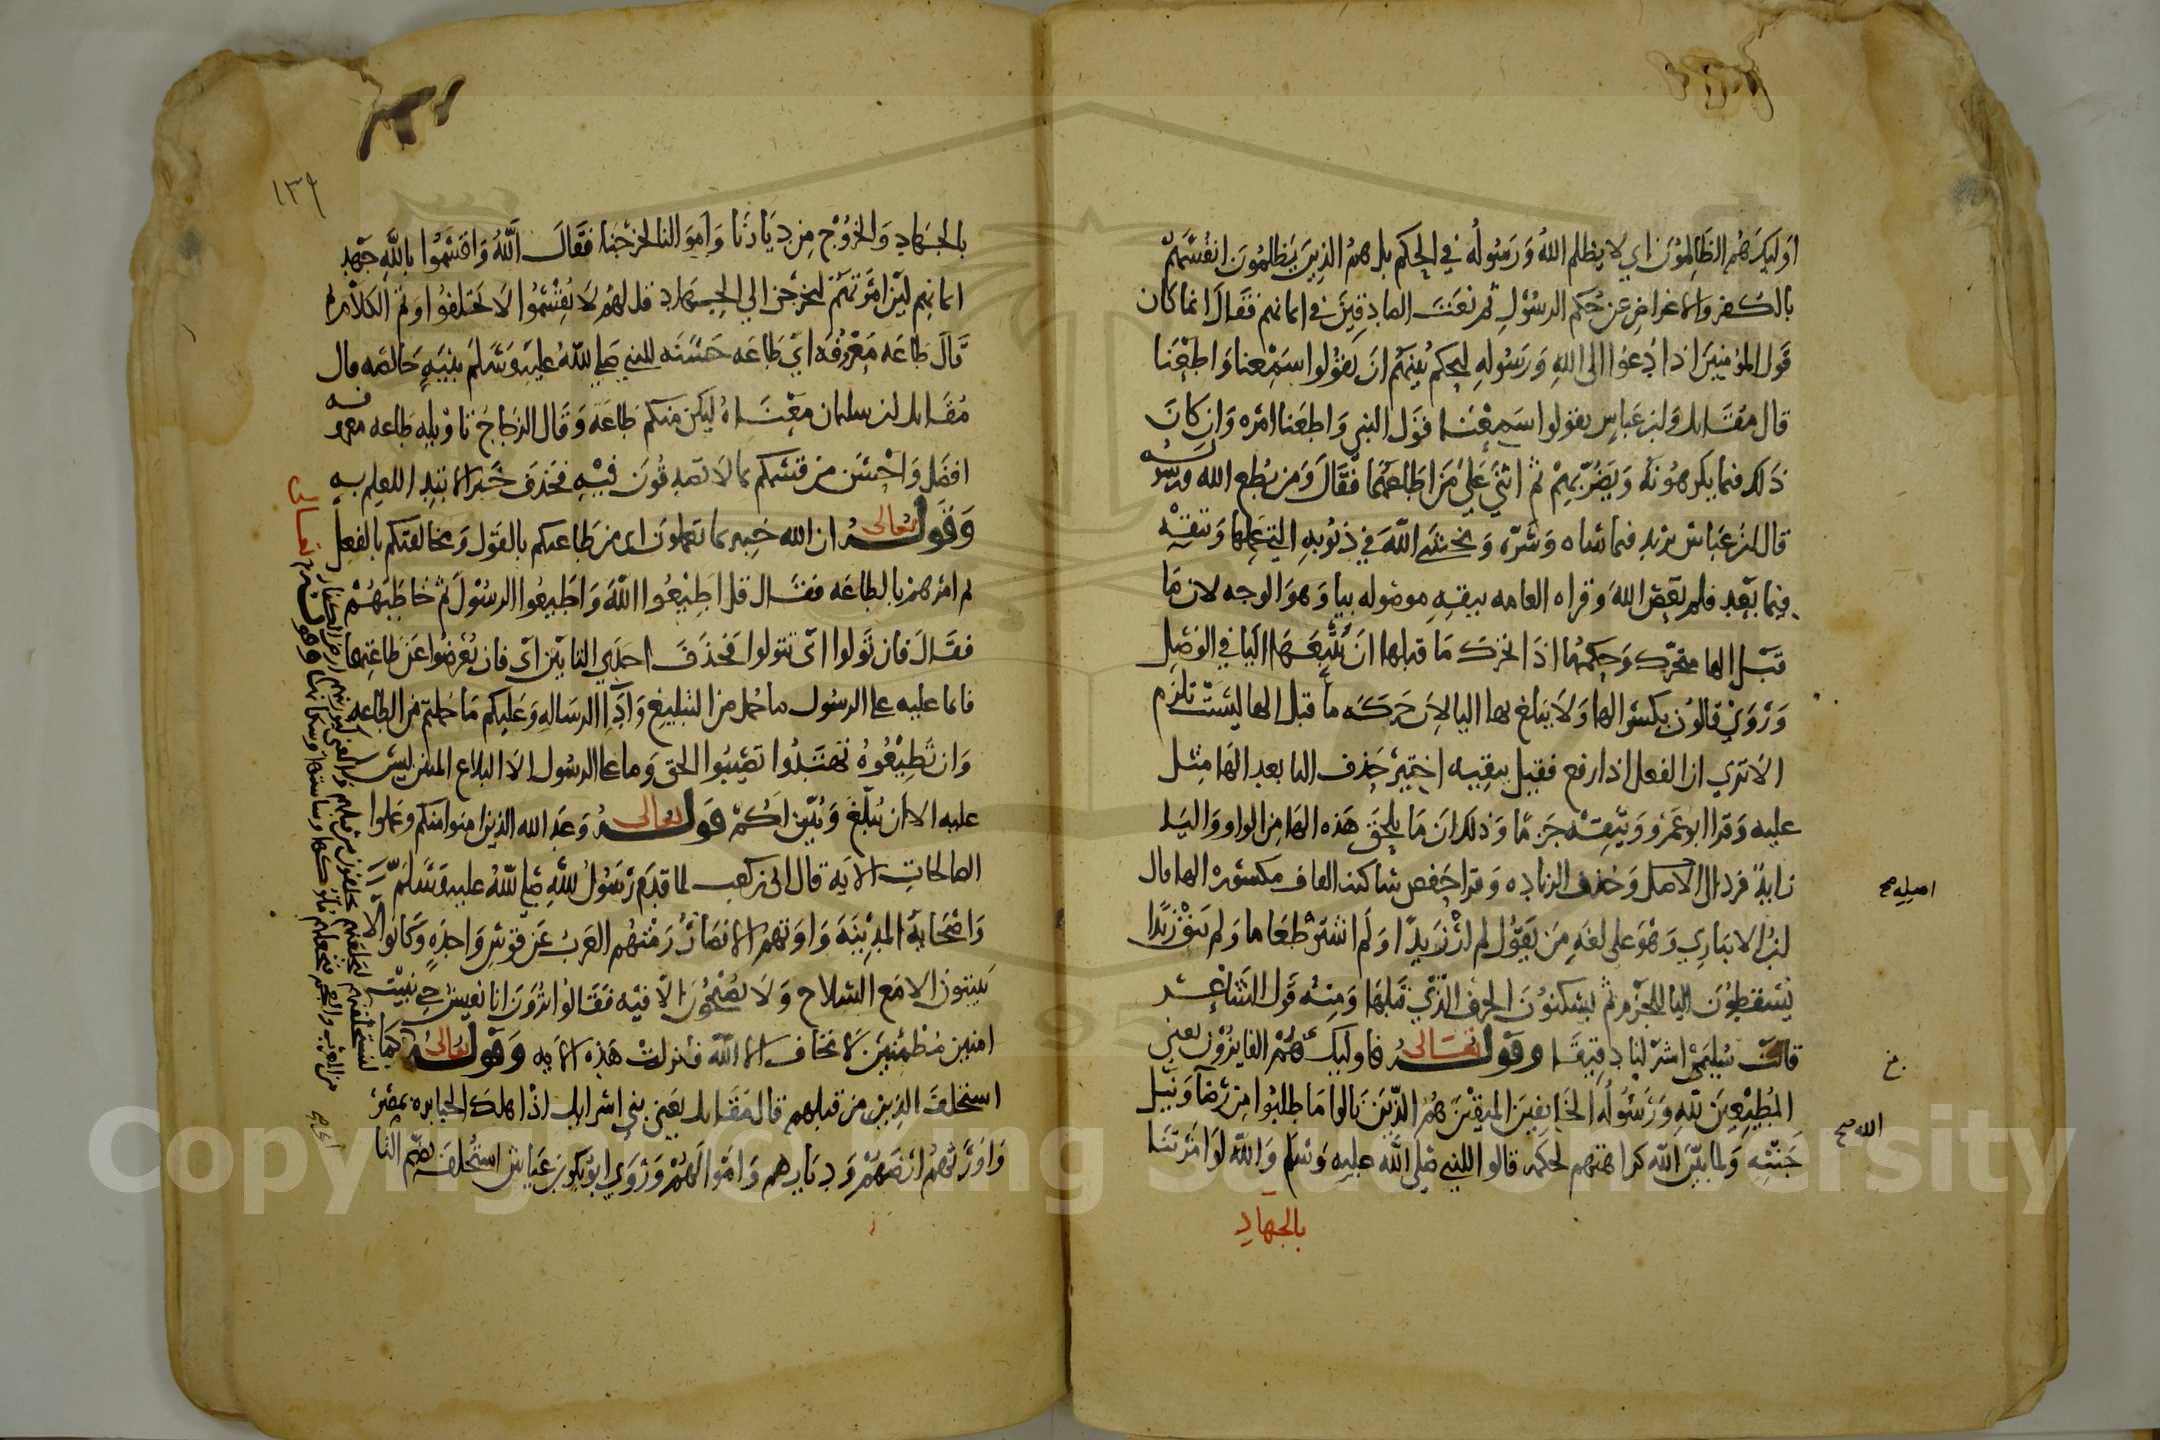 اوليك هم الظالمون اي لا يظلم الله ورسوله في الحكم بل هم الذين يظلمون انفسهم
بالكفر والاعراض عن حكم الرسول ثم نعت الصادقين في ايمانهم فقال انما كان
قول المومنين اذا دعوا الى الله ورسوله ليحكم بينهم ان يقولوا سمعنا واطعنا
قال مقاتل وابن عباس يقولوا سمعنا قول النبي واطعنا امره وان كان
ذلك فيما يكرهونه ويضر بهم ثم اثنى على من اطاعهما فقال ومن يطع الله ورسوله
قال ابن عباس يريد فيما ساه وسره ويخشى الله في ذنوبه التي عملها ويتقه
فيما بعد فلم يعص الله وقراه العامه يتقه موصوله بيا وهو الوجه لان ما
قبل الها متحرك وحكمها اذا تحرك ما قبلها ان يتبعها اليا في الوصل
وروي قالون بكسر الها ولا يبلغ بها اليا لان حركه ما قبل الها ليست تلزم
الا ترى ان الفعل اذا رفع فقيل يتقيه اختير حذف اليا بعد الها مثل
عليه وقرا ابو عمرو ويتقه جزما وذلك ان ما يلحق هذه الها من الواو واليا
زايد فرد الى الاصل وحذف الزياده وقرا حفص ساكنه القاف مكسوره الها قال
اصليه صح
ابن الانباري وهو على لغه من يقول لم ار زيدا ولم اشتر طعاما ولم يتق زيدا
يسقطون اليا للجزم ثم يسكنون الحرف الذي قبلها ومنه قول الشاعر
قالت سليمى اشتر لنا دقيقا وقوله تعالى فاوليك هم الفايزون يعني
المطيعين لله ورسوله الخايفين المتقين هم الذين نالوا ما طلبوا من رضا ونيل
الله صح
جنته ولما بين الله كراهتهم لحكمه قالوا للنبي صلى الله عليه وسلم والله لو امرتنا
بالجهاد
١٣٩
بالجهاد والخروج من ديارنا واموالنا لخرجنا فقال الله واقسموا بالله جهد
ايمانهم لين امرتهم ليخرجن الى الجهاد قل لهم لا تقسموا لا تحلفوا وتم الكلام ثم
قال طاعه معروفه اي طاعه حسنه للنبي صلى الله عليه وسلم بنيه خالصه قال
مقاتل بن سليمان معناه ليكن منكم طاعه وقال الزجاج تاويله طاعه معروفه
افضل واحسن من قسمكم بما لا تصدقون فيه فحذف خبر الابتدا للعلم به
وقوله تعالى ان الله خبير بما تعملون اي من طاعتكم بالقول ومخالفتكم بالفعل
ثم امرهم بالطاعه فقال قل اطيعوا الله واطيعوا الرسول ثم خاطبهم
فقال فان تولوا اي تتولوا فحذف احدى التاين اي فان يعرضوا عن طاعتهما
فانما عليه على الرسول ما حمل من التبليغ وادا الرساله وعليكم ما حملتم من الطاعه
وان تطيعوه تهتدوا تصيبوا الحق وما على الرسول الا البلاغ المبين ليس
عليه الا ان يبلغ ويبين لكم قوله تعالى وعد الله الذين امنوا منكم وعملوا
الصالحات الايه قال ابي بن كعب لما قدم رسول الله صلى الله عليه وسلم
واصحابه المدينه واوتهم الانصار رمتهم العرب عن قوس واحده وكانوا لا
يبيتون الا مع السلاح ولا يصبحون الا فيه فقالوا اترون انا نعيش حتى نبيت
امنين مطمينين لا نخاف الا الله فنزلت هذه الايه وقوله تعالى كما
استخلف الذين من قبلهم قال مقاتل يعني بني اسرايل اذ اهلك الجبابره بمصر
واورثهم ارضهم وديارهم واموالهم وروي ابو بكر بن عياش استخلف بضم التا
وقوله تعالى
ليستخلفنهم